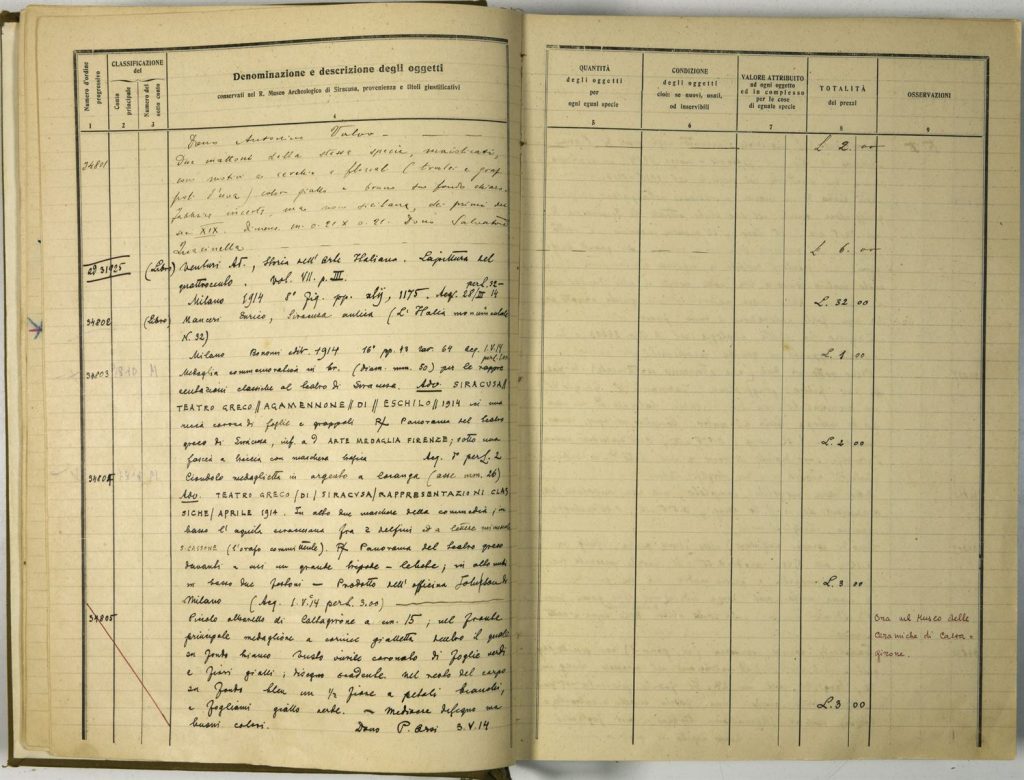 Numero d'ordine progressivo
CLASSIFICAZIONE del
Conto principale
Numero del sotto conto
Denominazione e descrizione degli oggetti
conservati nel R. Museo Archeologico di Siracusa, provenienza e titoli giustificativi
1 2 3 4
Dono Antonino
34801 Due mattoni della stessa specie, maiolicati,
con motivi a cerchio e floreali (
d'uva) color giallo e bruno su fondo chiaro.
Fabbrica incerta, ma non siciliana, dei primi del
sec XIX. Dimens. m. 0.21 x 0.21. Dono Salvatore
(Libro) Venturi Ad., Storia dell'Arte Italiana. La pittura del
quattrocento. Vol. VII. p. III. per L. 32-
Milano 1914 8° fig. pp. 1175. Acq. 28/III 14
34802 (Libro) Manceri Enrico, Siracusa antica (L'Italia monumentale
N. 32)
Milano Bonomi edit. 1914 16° pp. 13 tav. 64 Acq. 1.V.14
34803 Medaglia commemorativa in br. (diam. mm. 50) per le rappre
sentazioni classiche al teatro di Siracusa. Adv. SIRACVSA//
TEATRO GRECO // AGAMENNONE // DI // ESCHILO // 1914 in una
corona di foglie e grappoli R/ Panorama del teatro
greco di Siracusa, inf. a d ARTE MEDAGLIA FIRENZE; sotto una
fascia a treccia con maschera Acq. per L. 2
34804 Ciondolo medaglietta in argento a losanga (asse mm. 26)
Adv. TEATRO GRECO / DI / SIRACVSA / RAPPRESENTAZIONI CLAS
SICHE / APRILE 1914. In alto due maschere della commedia; in
basso l'aquila siracusana fra 2 delfini a lettere
(l'orafo committente). R/ Panorama del teatro greco
davanti a cui un grande tripode - lebete; in alto
in basso due festoni — Prodotto dell'officina Johnson di
Milano (Acq. 1.V.14 per L. 3.00)
34805 Piccolo albarello di Caltagirone a cm. 15; nel fronte
principale medaglione a cornice gialletta dentro il quale
su fondo bianco busto virile coronato di foglie verdi
e fiori gialli; disegno scadente. Nel resto del corpo
su fondo bleu un ½ fiore a petali bianchi,
e fogliami giallo verde. — Mediocre disegno ma
buoni colori. Dono P. Orsi 3.V.14
QUANTITÀ degli oggetti per ogni eguai specie
CONDIZIONE degli oggetti cioè: se nuovi, usati, od inservibili
VALORE ATTRIBUITO ad ogni oggetto ed in complesso per le cose di eguale specie
TOTALITÀ dei prezzi
OSSERVAZIONI
5 6 7 8 9
L. 2 00
L. 6 00
L. 32 00
L. 1 00
L. 2 00
L. 3 00
Ora nel Museo delle
Ceramiche di Calta-
girone.
L. 3 00